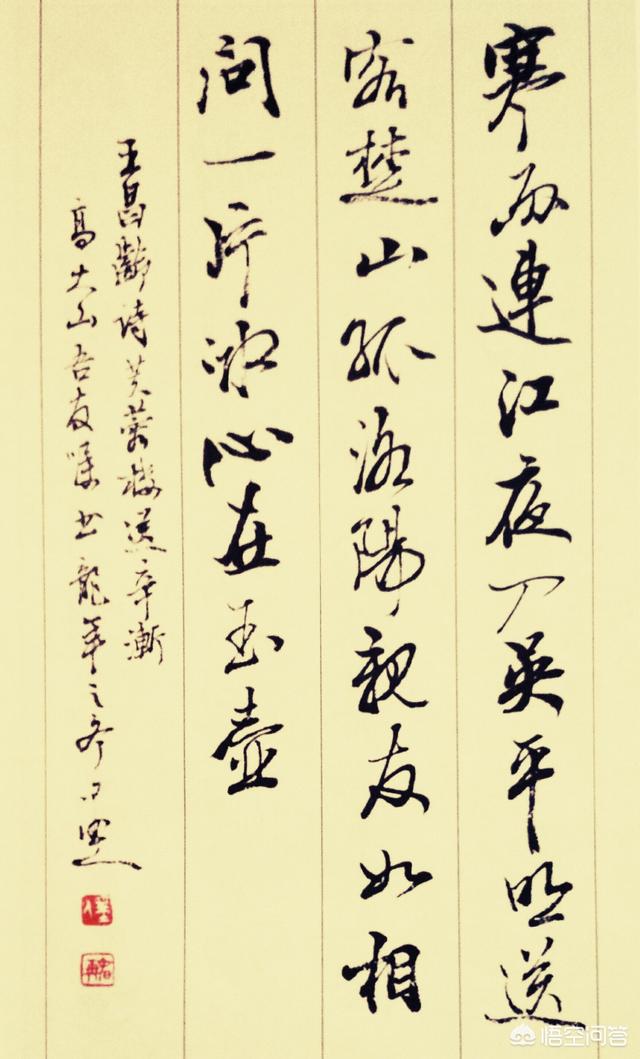 寒雨連江夜入吴平明送
客楚山孤洛陽親友如相
问一片冰心在玉壺
王昌齡诗芙蓉楼送辛漸
高大山吾友嘱书龍年之冬
悟空问答